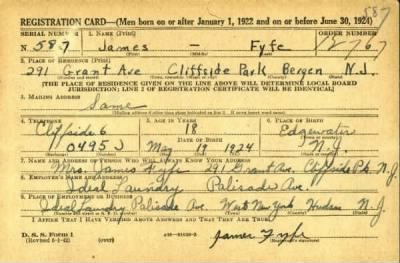 587
REGISTRATION CARD—(Men born on or after January 1, 1922 and on or before June 30, 1924)
SERIAL NUMBER 1. NAME (Print) ORDER NUMBER
N 587 James — Fyfe 12767
2. PLACE OF RESIDENCE (Print)
291 Grant Ave Cliffside Park Bergen N.J.
[THE PLACE OF RESIDENCE GIVEN ON THE LINE ABOVE WILL DETERMINE LOCAL BOARD
JURISDICTION; LINE 2 OF REGISTRATION CERTIFICATE WILL BE IDENTICAL]
3. MAILING ADDRESS
Same
4. TELEPHONE 5. AGE IN YEARS 6. PLACE OF BIRTH
Cliffside 6 18 Edgewater
DATE OF BIRTH
0495 J May 19 1924 N.J.
7. NAME AND ADDRESS OF PERSON WHO WILL ALWAYS KNOW YOUR ADDRESS
Mrs. James Fyfe 291 Grant Ave. Cliffside Pk. N.J.
8. EMPLOYER'S NAME AND ADDRESS
Ideal Laundry Palisade Ave.
9. PLACE OF EMPLOYMENT OR BUSINESS
Ideal Laundry Palisade Ave. West New York Hudson N.J.
I AFFIRM THAT I HAVE VERIFIED ABOVE ANSWERS AND THAT THEY ARE TRUE.
D. S. S. Form 1
(Revised 6-9-42) (over) James Fyfe